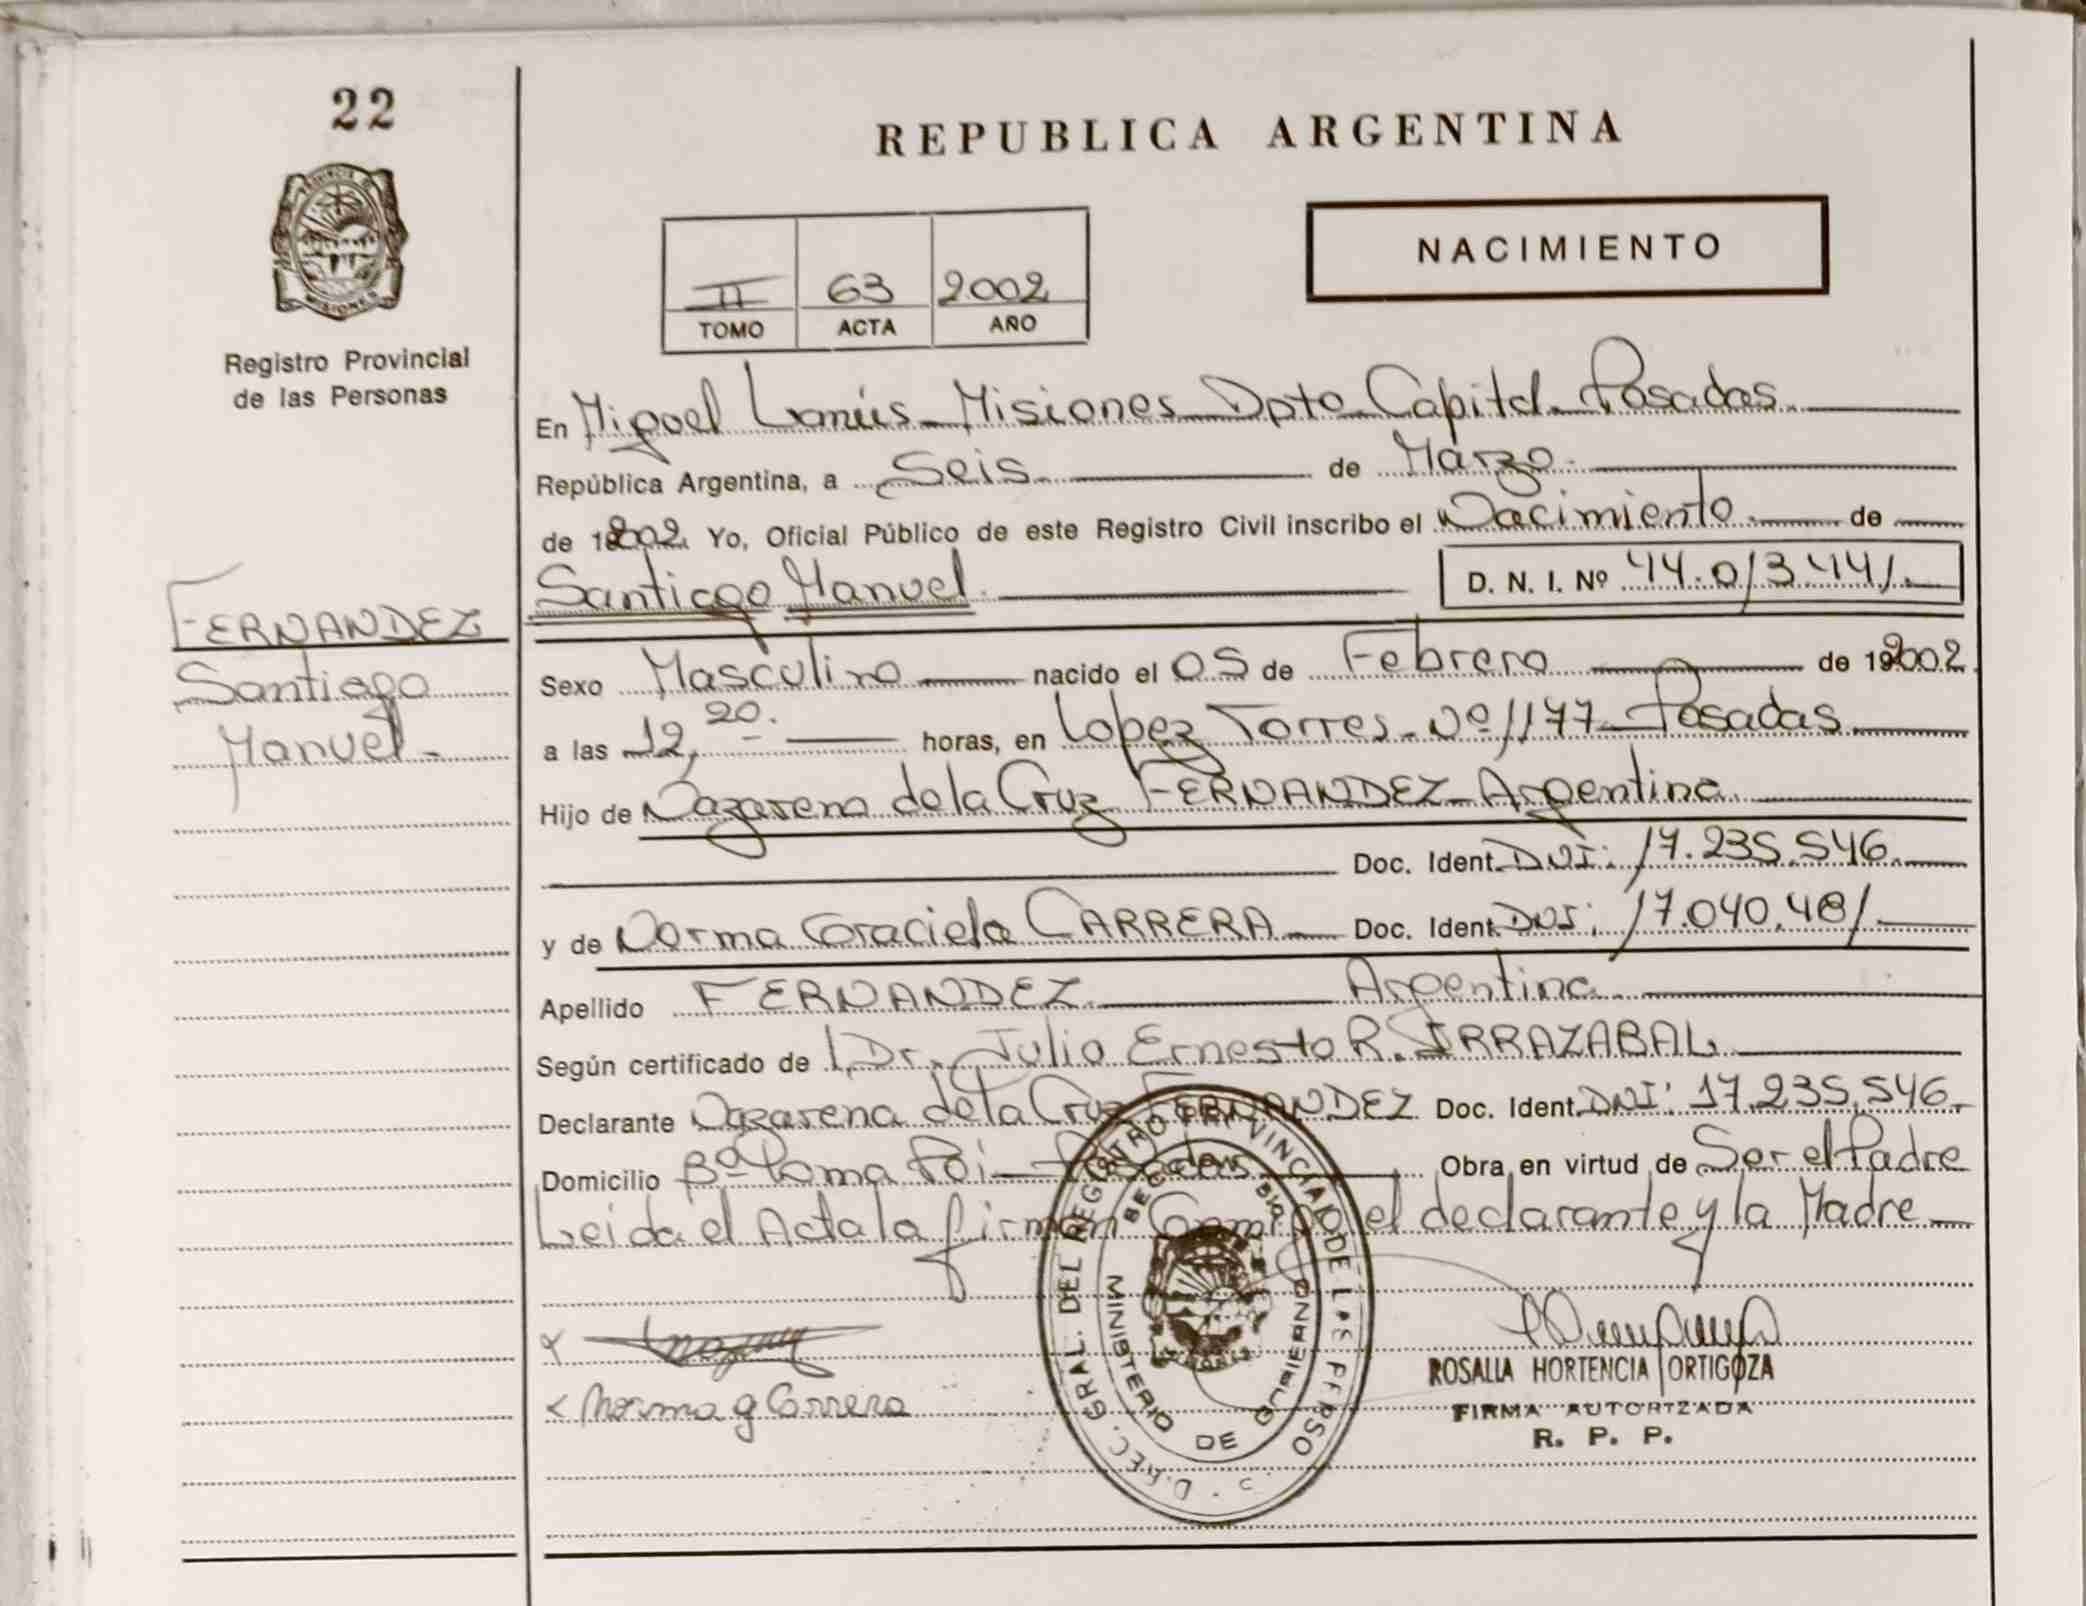 22
Registro Provincial
de las Personas
FERNANDEZ
Santiago
Manuel.
REPUBLICA ARGENTINA
NACIMIENTO
II 63 2002
TOMO ACTA AÑO
En Miguel Lanús Misiones Dpto. Capital. Posadas.
República Argentina, a Seis de Marzo.
de 2002. Yo, Oficial Público de este Registro Civil inscribo el Nacimiento. de
Santiago Manuel. D. N. I. Nº 44.013.441.
Sexo Masculino nacido el 05 de Febrero de 2002.
a las 12,20. horas, en Lopez Torres. Nº 1177 Posadas.
Hijo de Nazareno de la Cruz FERNANDEZ Argentina.
Doc. Ident. DNI: 17.235.546.
y de Norma Graciela CARRERA Doc. Ident. DNI: 17.040.481.
Apellido FERNANDEZ. Argentina.
Según certificado de Dr. Julio Ernesto R. IRRAZABAL.
Declarante Nazareno de la Cruz FERNANDEZ Doc. Ident. DNI: 17.235.546.
Domicilio Bº Loma Poi Posadas Obra en virtud de Ser el Padre
Leida el Acta la firman Conmigo el declarante y la Madre
Norma G Carrera
ROSALIA HORTENCIA ORTIGOZA
FIRMA AUTORIZADA
R. P. P.
GRAL. DEL REGISTRO PROVINCIAL DE
MINISTERIO DE GOBIERNO